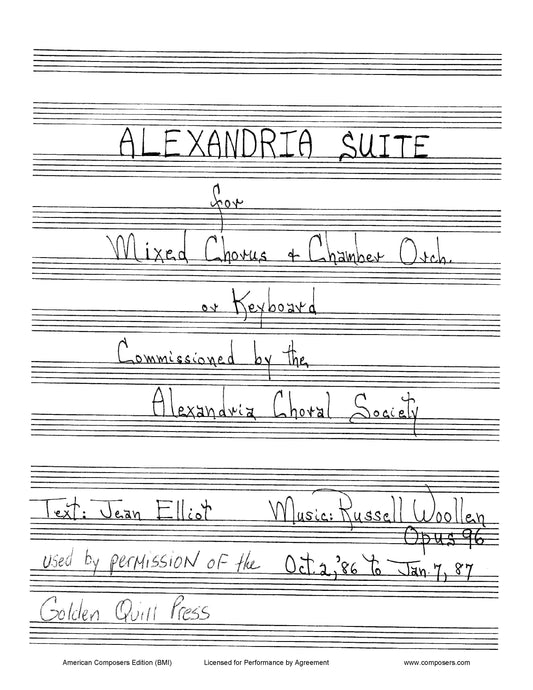 ALEXANDRIA SUITE
for
Mixed Chorus + Chamber Orch.
or Keyboard
Commissioned by the
Alexandria Choral Society
Text: Jean Elliot Music: Russell Woollen
Opus 96
used by permission of the Oct. 2, '86 to Jan. 7, 87
Golden Quill Press
American Composers Edition (BMI) Licensed for Performance by Agreement www.composers.com